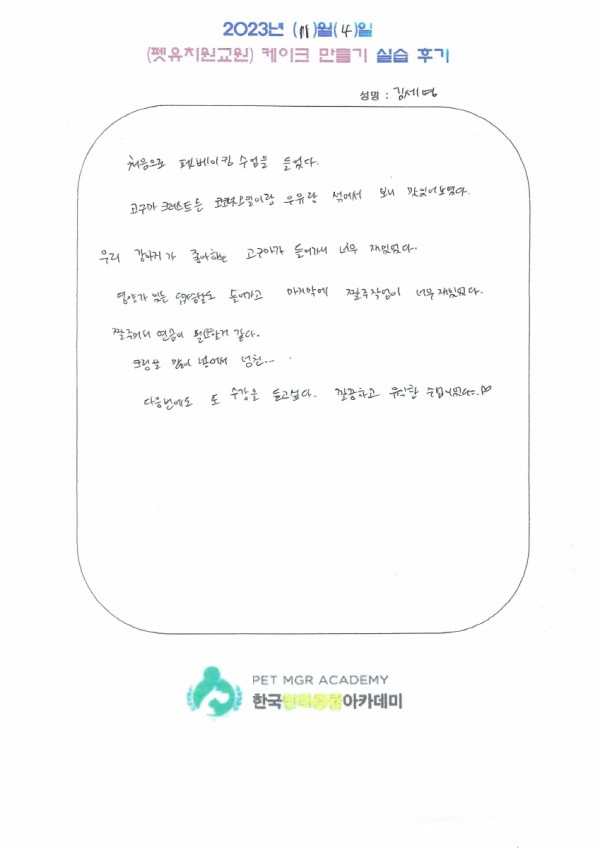 2023년 (11)월(4)일
(펫유치원교원) 케이크 만들기 실습 후기
성명 : 김세영
처음으로 펫베이킹 수업을 들었다.
고구마 크러스트는 코코넛오일이랑 우유랑 섞어서 보니 맛있어보였다.
우리 강아지가 좋아하는 고구마가 들어가서 너무 재밌었다.
영양가 있는 닭가슴살도 들어가고 마지막에 짤주작업이 너무 재밌었다.
짤주머니 연습이 필요할거 같다.
크림을 많이 넣어서
다음번에도 또 수강을 듣고싶다. 깔끔하고 유익한 수업이었다.♡
PET MGR ACADEMY
한국반려동물아카데미